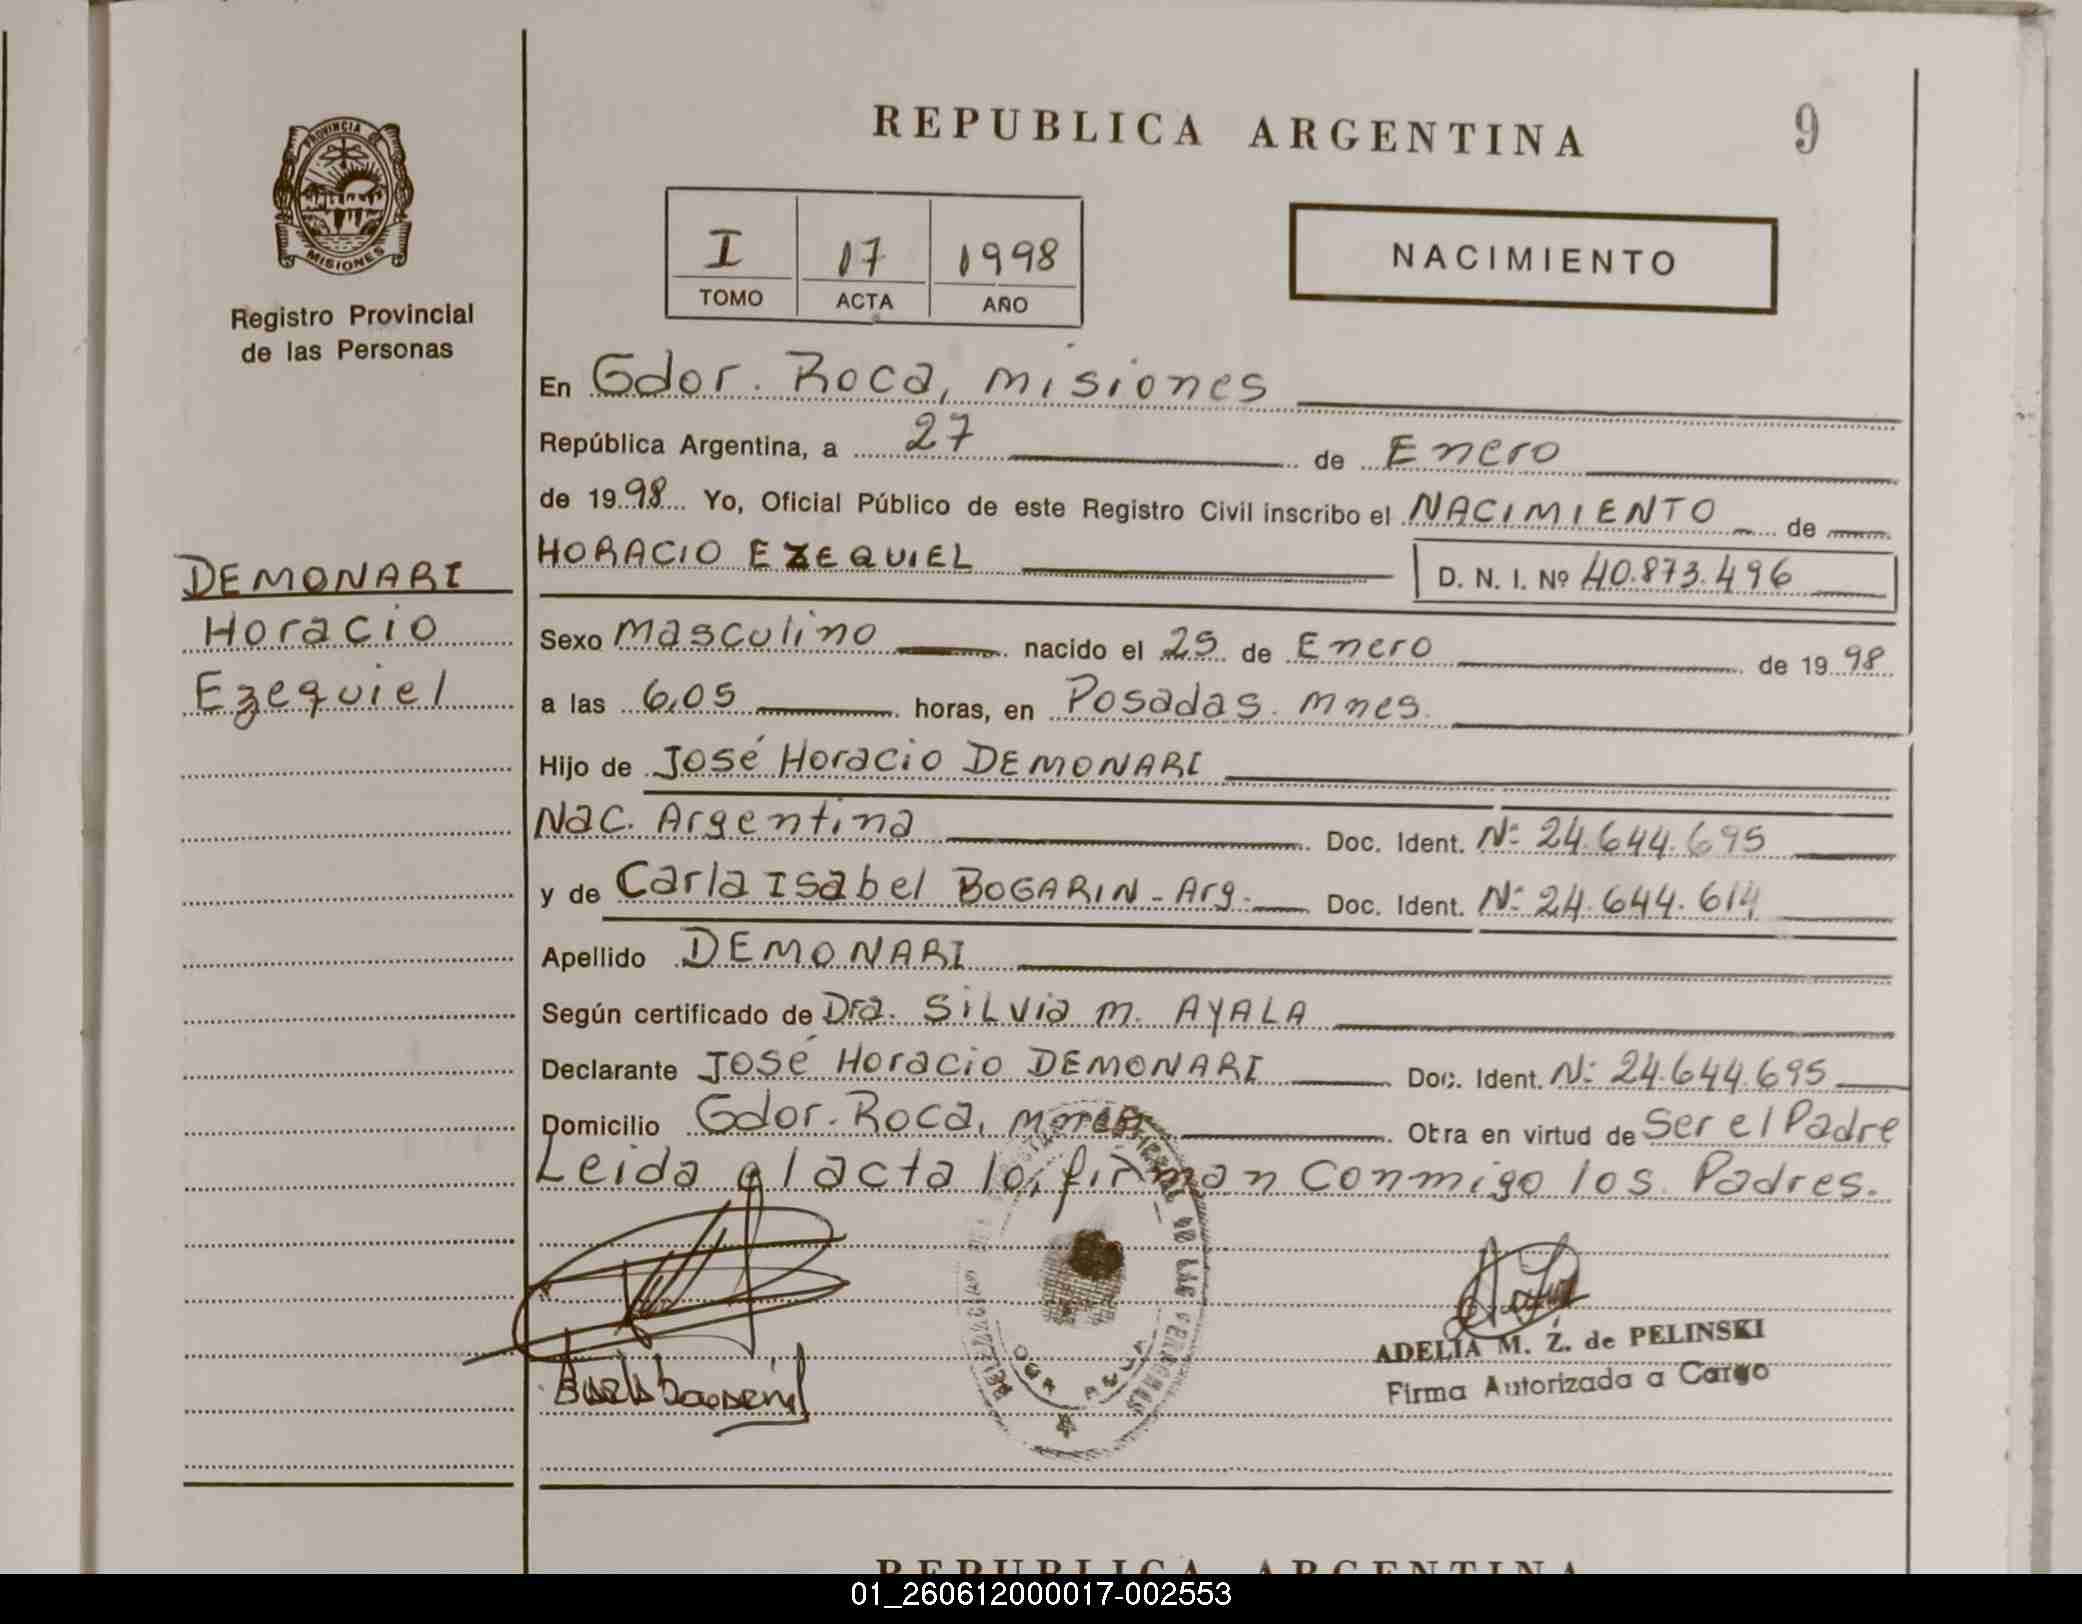 REPUBLICA ARGENTINA
9
PROVINCIA DE
MISIONES
Registro Provincial
de las Personas
I 17 1998
TOMO ACTA AÑO
NACIMIENTO
En Gdor. Roca, misiones
República Argentina, a 27 de Enero
de 1998 Yo, Oficial Público de este Registro Civil inscribo el NACIMIENTO de
HORACIO EZEQUIEL D. N. I. Nº 40.873.496
DEMONARI
Horacio
Ezequiel
Sexo masculino nacido el 25 de Enero de 1998
a las 6,05 horas, en Posadas. mnes.
Hijo de José Horacio DEMONARI
Nac. Argentina Doc. Ident. Nº 24.644.695
y de Carla Isabel BOGARIN - Arg. Doc. Ident. Nº 24.644.614
Apellido DEMONARI
Según certificado de Dra. SiLVia m. AYALA
Declarante José Horacio DEMONARI Doc. Ident. Nº 24.644.695
Domicilio Gdor. Roca, mnes Otra en virtud de Ser el Padre
Leida el acta la firman conmigo los Padres.
ADELIA M. Z. de PELINSKI
Firma Autorizada a Cargo
REPUBLICA ARGENTINA
01_260612000017-002553